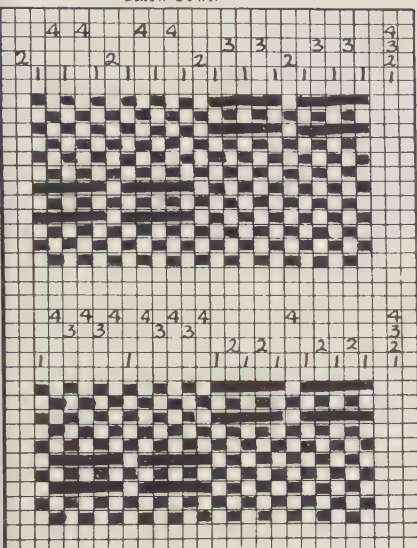 4 4 4 4 4
3 3 3 3 3
2 2 2 2 2
1 1 1 1 1 1 1 1 1 1 1 1 1
4 4 4 4 4 4 4 4
3 3 3 3 3
2 2 2 2 2
1 1 1 1 1 1 1 1 1